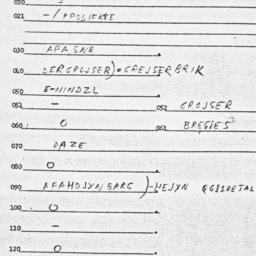 020
021 -/APOLIEKTE
030 APASNE
040 BERGROJSER)=GREJSERBRIK
050 E-NINDZL
051 - 052 GROJSER
060 O 061 BREGIES
070 DAZE
080 O
090 AFAHOJYNBARG)-HEJYN
100 O
110 -
120 O